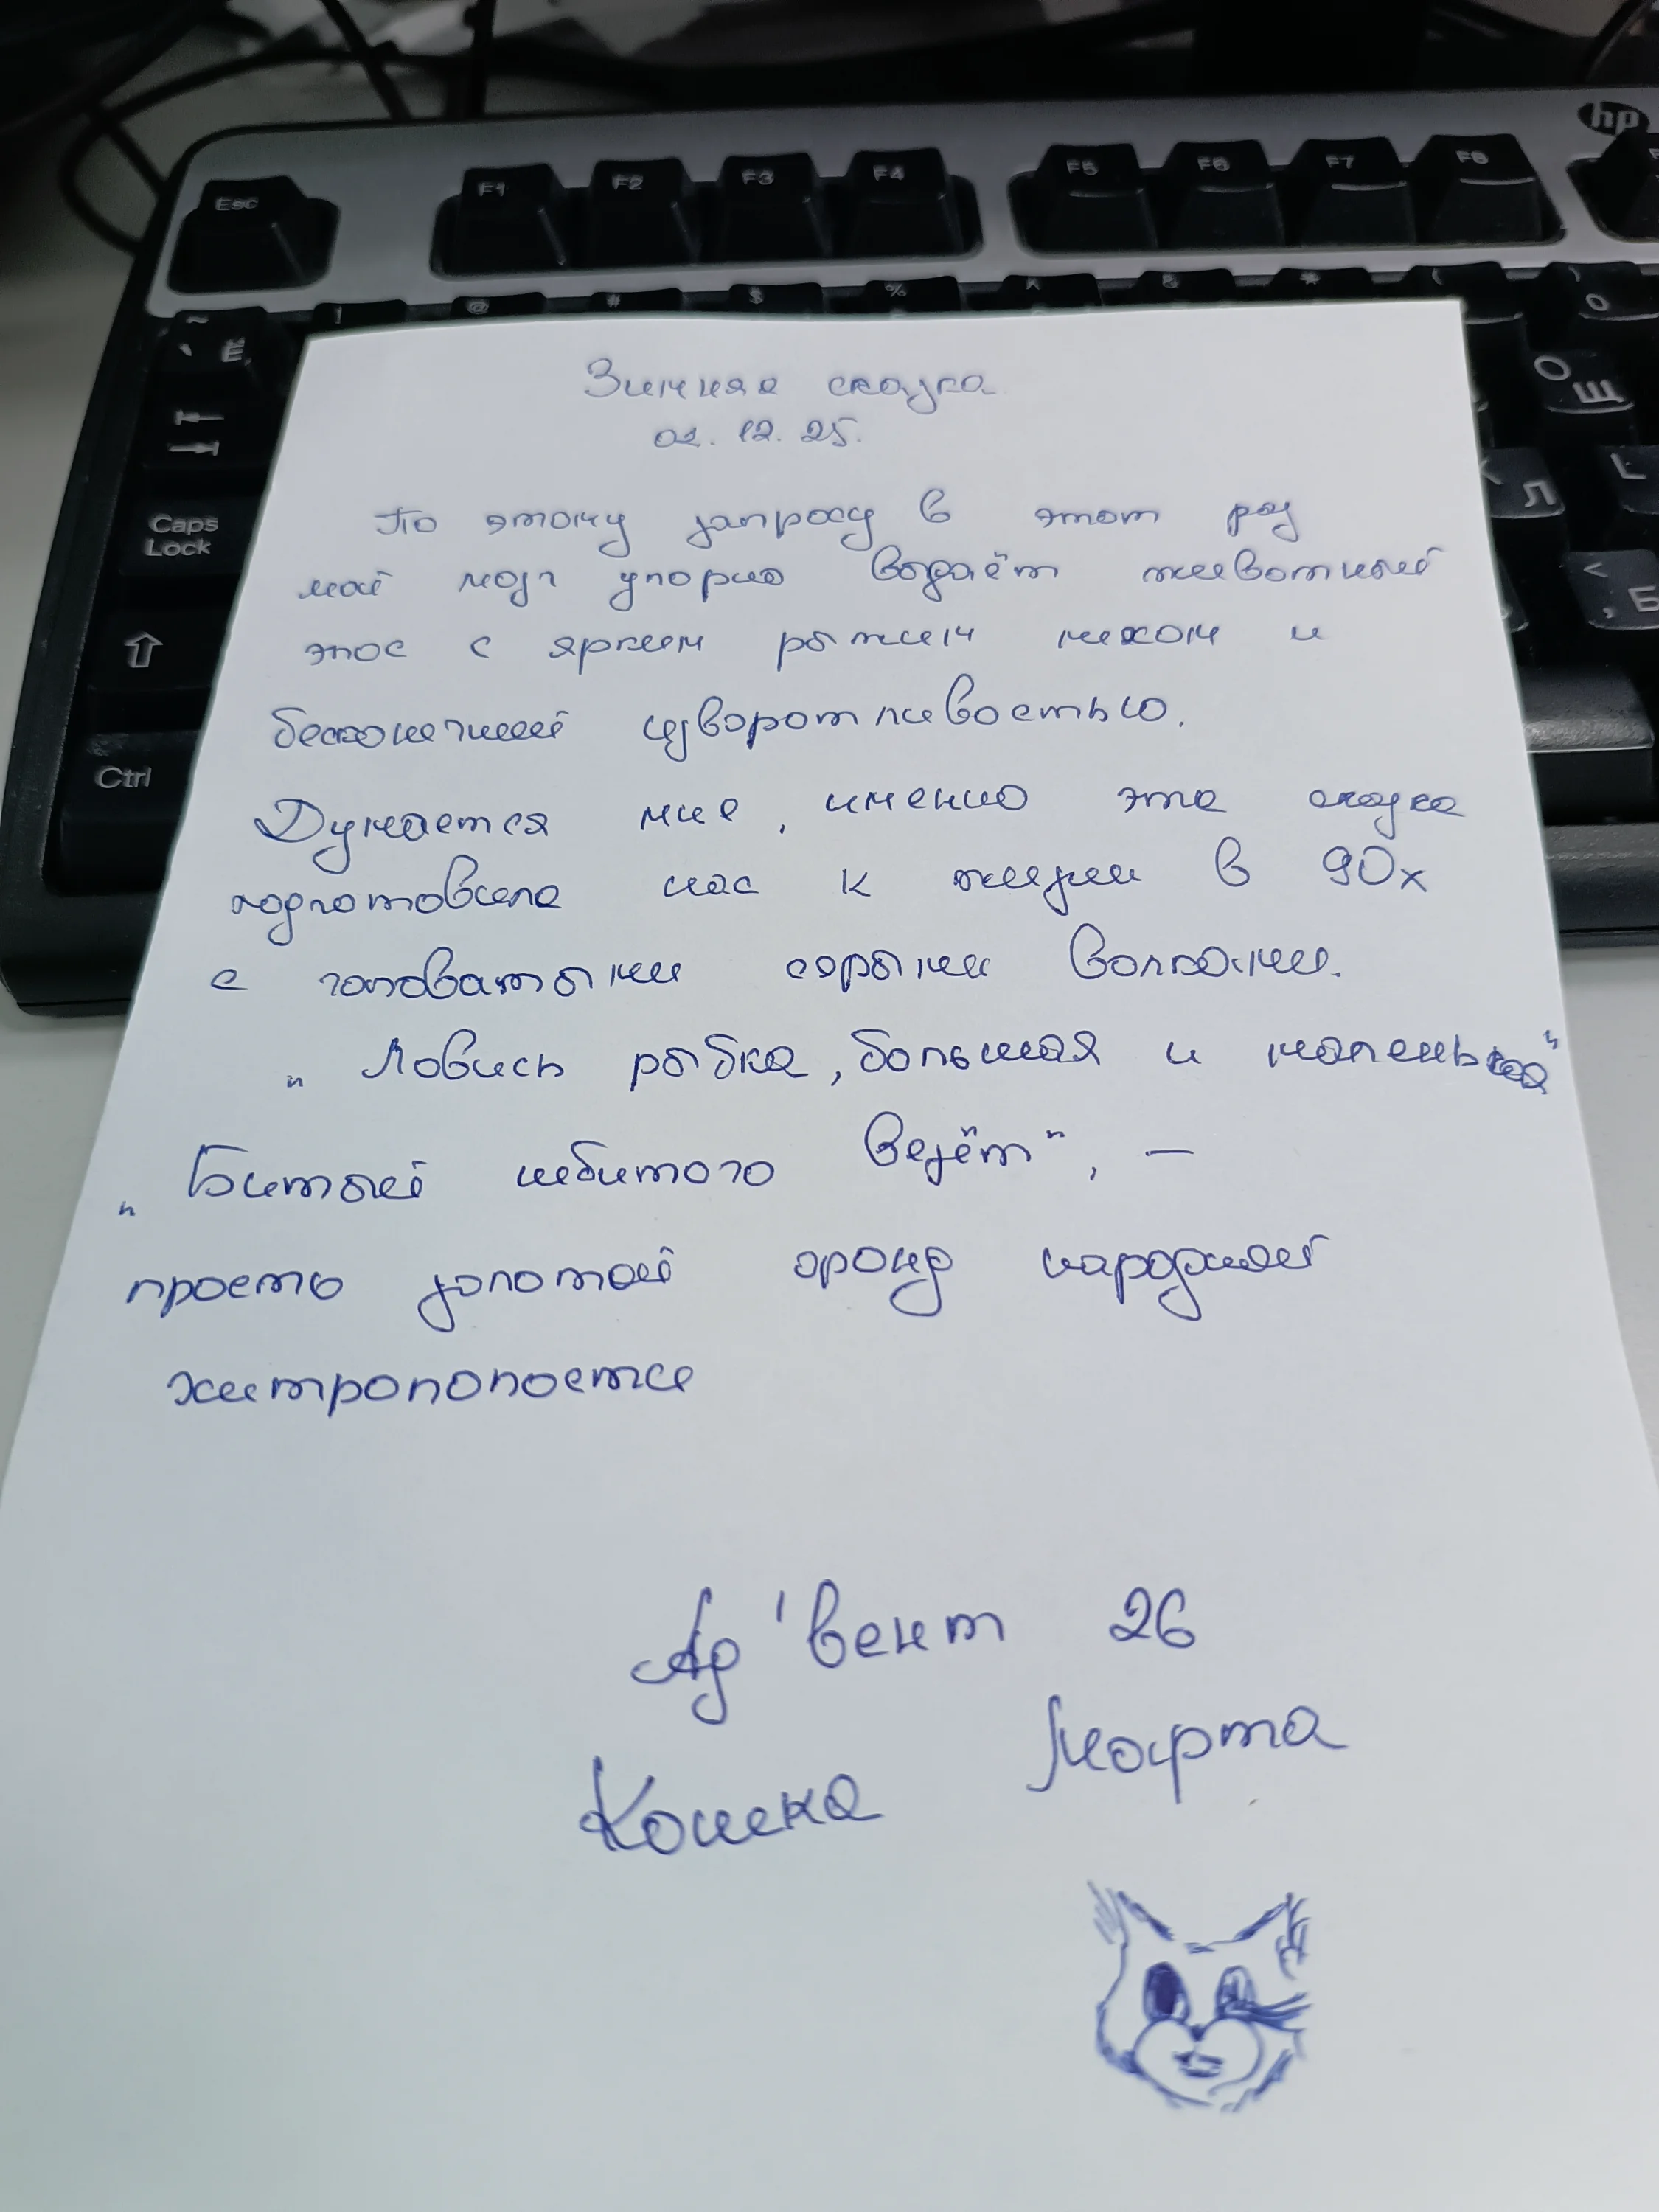 hp
Esc F1 F2 F3 F4 F5 F6 F7 F8
~ ! @ # $ % ^ & * ( )
` Ё О
О Щ
Caps Lock Л
< , Б
Ctrl
Зимняя сказка
02. 12. 25.
По этому запросу в этот раз
мой мозг упорно выдаёт животный
эпос с ярким рыжим мехом и
бесконечной изворотливостью.
Думается мне, именно эта сказка
подготовила нас к жизни в 90х
с головатыми серыми волками.
„Ловись рыбка, большая и маленькая"
„Битый небитого везёт", —
просто золотой фонд народной
хитропопости
Ад'вент 26
Кошка Марта